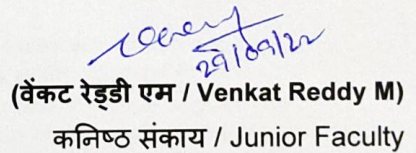 29/09/22
(वेंकट रेड्डी एम / Venkat Reddy M)
कनिष्ठ संकाय / Junior Faculty